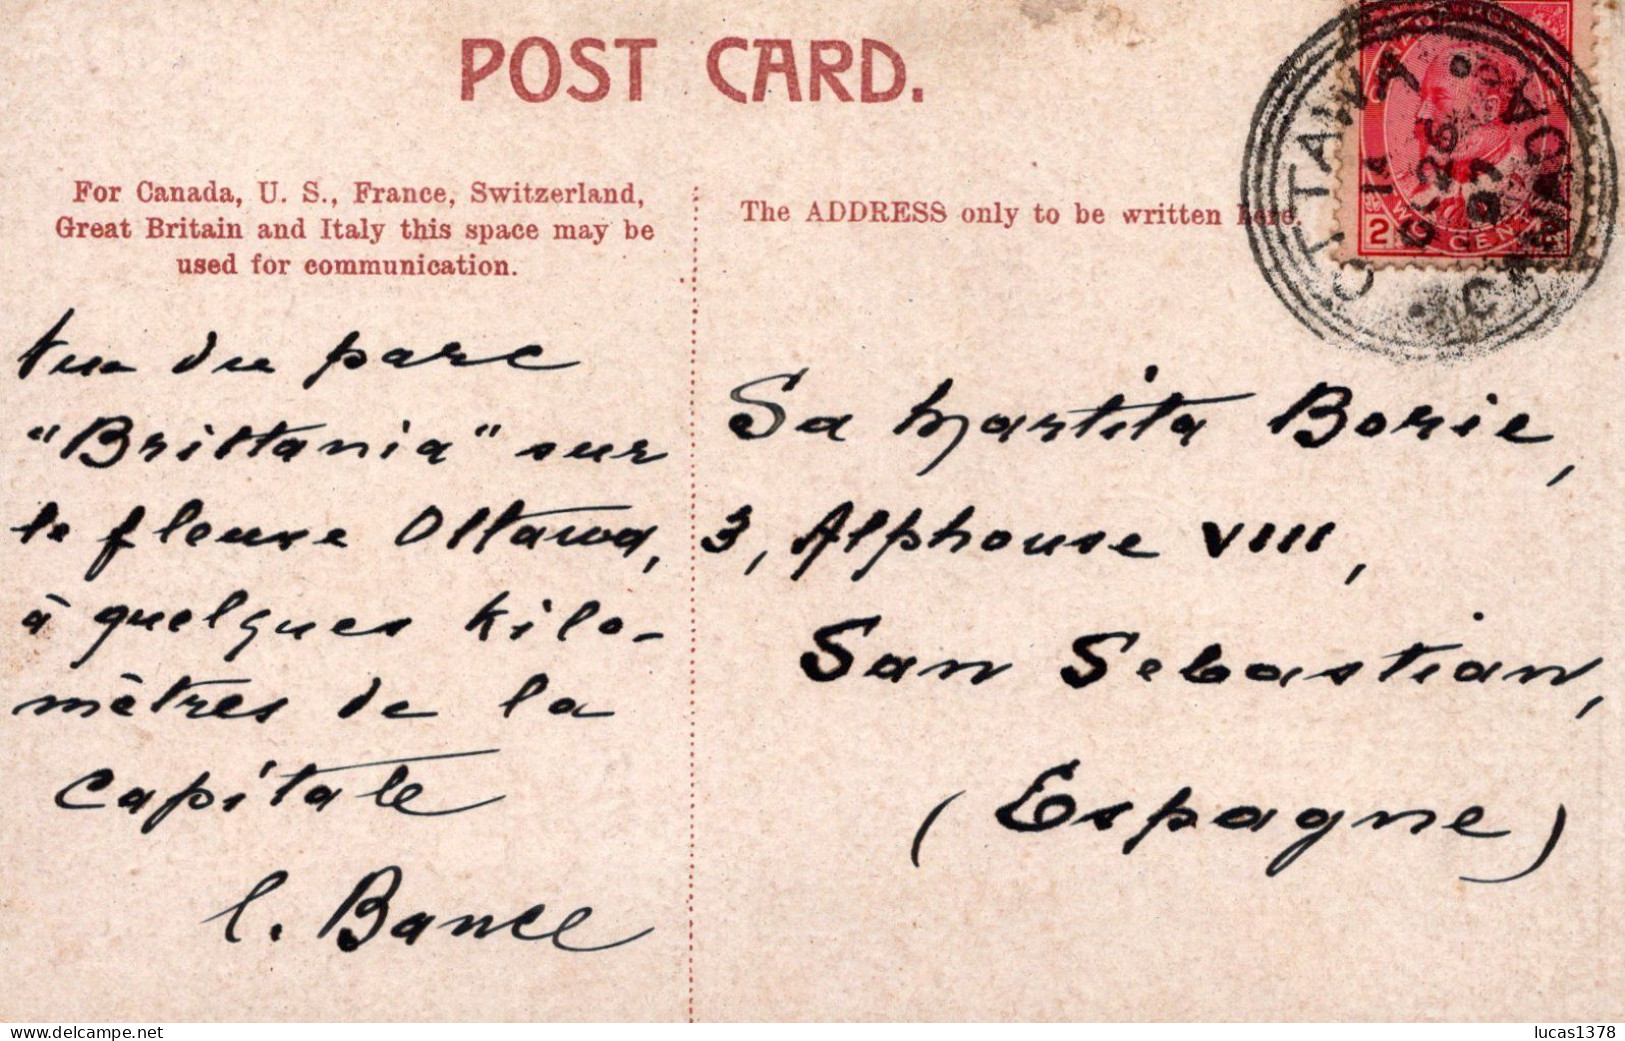 POST CARD.
For Canada, U. S., France, Switzerland,
Great Britain and Italy this space may be
used for communication.
The ADDRESS only to be written here.
OTTAWA
CANADA
26
07
2 CENTS
Vue du parc
"Brittania" sur
le fleuve Ottawa,
à quelques kilo-
mètres de la
Capitale
Sa Martita Borie,
3, Alphonse VIII,
San Sebastian,
(Espagne)
www.delcampe.net
lucas1378